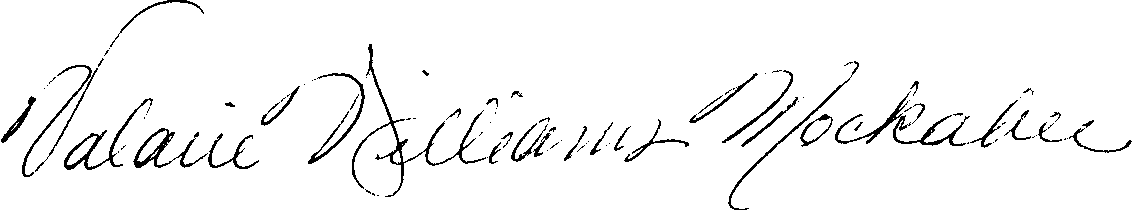 Valarie Williams Mockabee